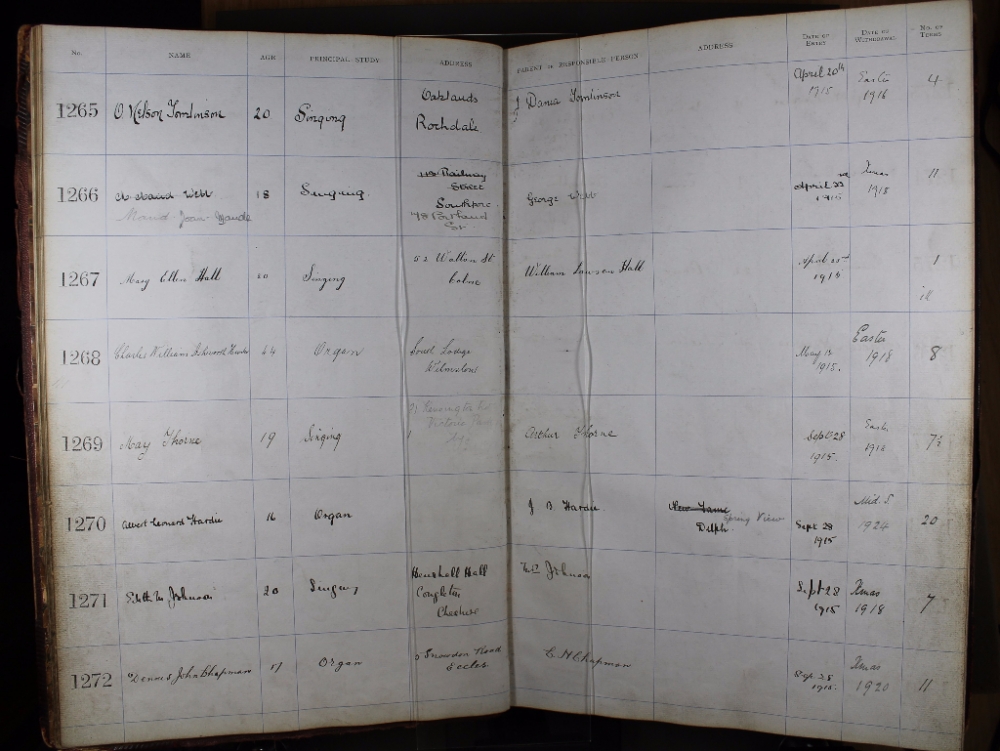 No. NAME AGE PRINCIPAL STUDY ADDRESS PARENT or RESPONSIBLE PERSON ADDRESS DATE OF ENTRY DATE OF WITHDRAWAL NO. OF TERMS
1265 O. Nelson Tomlinson 20 Singing Oaklands Rochdale J Tomlinson April 20th 1915 Easter 1916 4
1266 Maud Webb 18 Singing Railway Street Southport 98 Portland St. George Webb April 1915 Xmas 1918 11
Maud Jean-
1267 Mary Ellen Hall Singing 52 Walton St Colne William Lawson Hall April 1915 1
ill
1268 Charles William 24 Organ South Lodge Wilmslow May 13 1915. Easter 1918 8
1269 May Thorne 19 Singing 91 Kensington Victoria Arthur Thorne Sept 28 1915. East. 1918 7½
1270 Albert Leonard Hardie 16 Organ J B Hardie Spring View Delph. Sept 28 1915 Mid. S 1924 20
1271 Edith M Johnson 20 Singing Henshall Hall Congleton Cheshire Johnson Sept 28 1915 Xmas 1918 7
1272 Dennis John Chapman 17 Organ Snowdon Road Eccles C H Chapman Sep. 28 1915. Xmas 1920 11